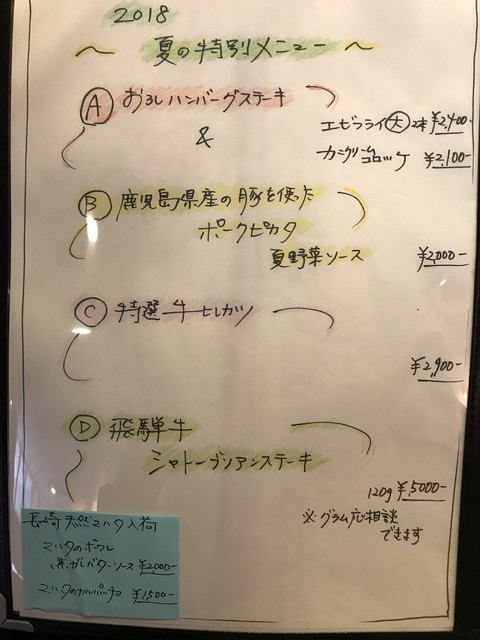 2018
～ 夏の特別メニュー ～
Ⓐ おろしハンバーグステーキ
&
エビフライ㊅ 2本 ¥2,400-
カニクリームコロッケ ¥2,100-
Ⓑ 鹿児島県産の豚を使った
ポークピカタ
夏野菜ソース
¥2,000-
Ⓒ 特選牛ヒレカツ
¥2,900-
Ⓓ 飛騨牛
シャトーブリアンステーキ
120g ¥5000-
※グラム応相談
できます
長崎天然マハタ入荷
マハタのポワレ
焦がしバターソース ¥2,000-
マハタのカルパッチョ ¥1,500-